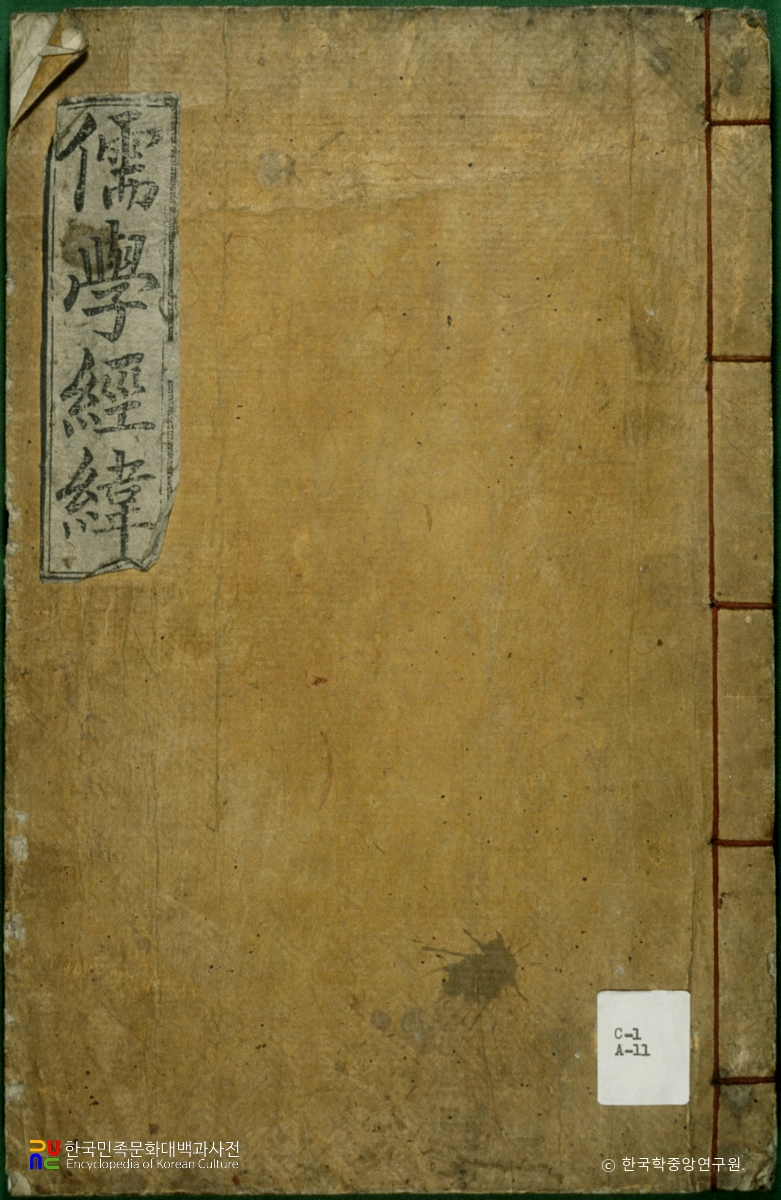 儒學經緯
C-1
A-11
한국민족문화대백과사전
Encyclopedia of Korean Culture
© 한국학중앙연구원.